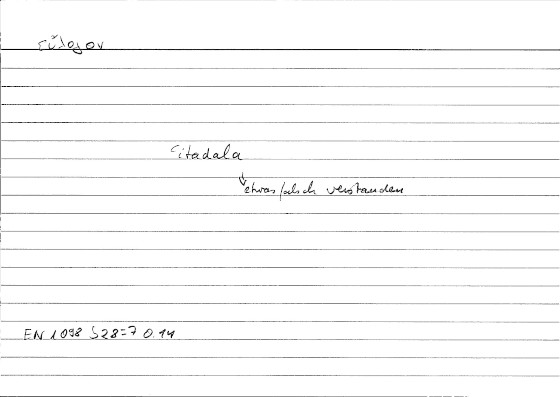 εὔλογον
citadala
↓
etwas falsch verstanden
EN 1098 b28=7 0.14